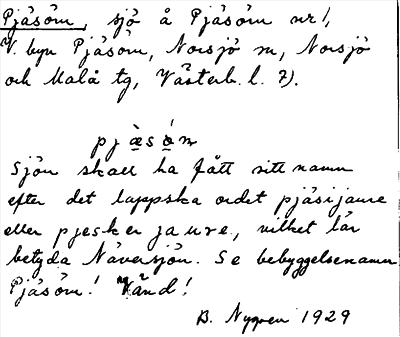 Pjäsöm, sjö å Pjäsöm nr 1,
V. byn Pjäsöm, Norsjö sn, Norsjö
och Malå tg, Västerb. l. 7).
pjæsøm
Sjön skall ha fått sitt namn
efter det lappska ordet pjäsijaure
eller pjesker jaure, vilket lär
betyda Näversjön. Se bebyggelsenamn
Pjäsöm! Vänd!
B. Nygren 1929